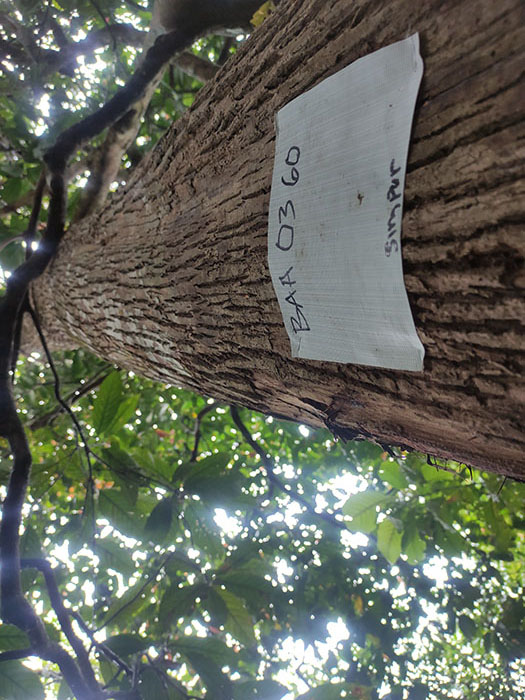 BAA 03 60
simpur